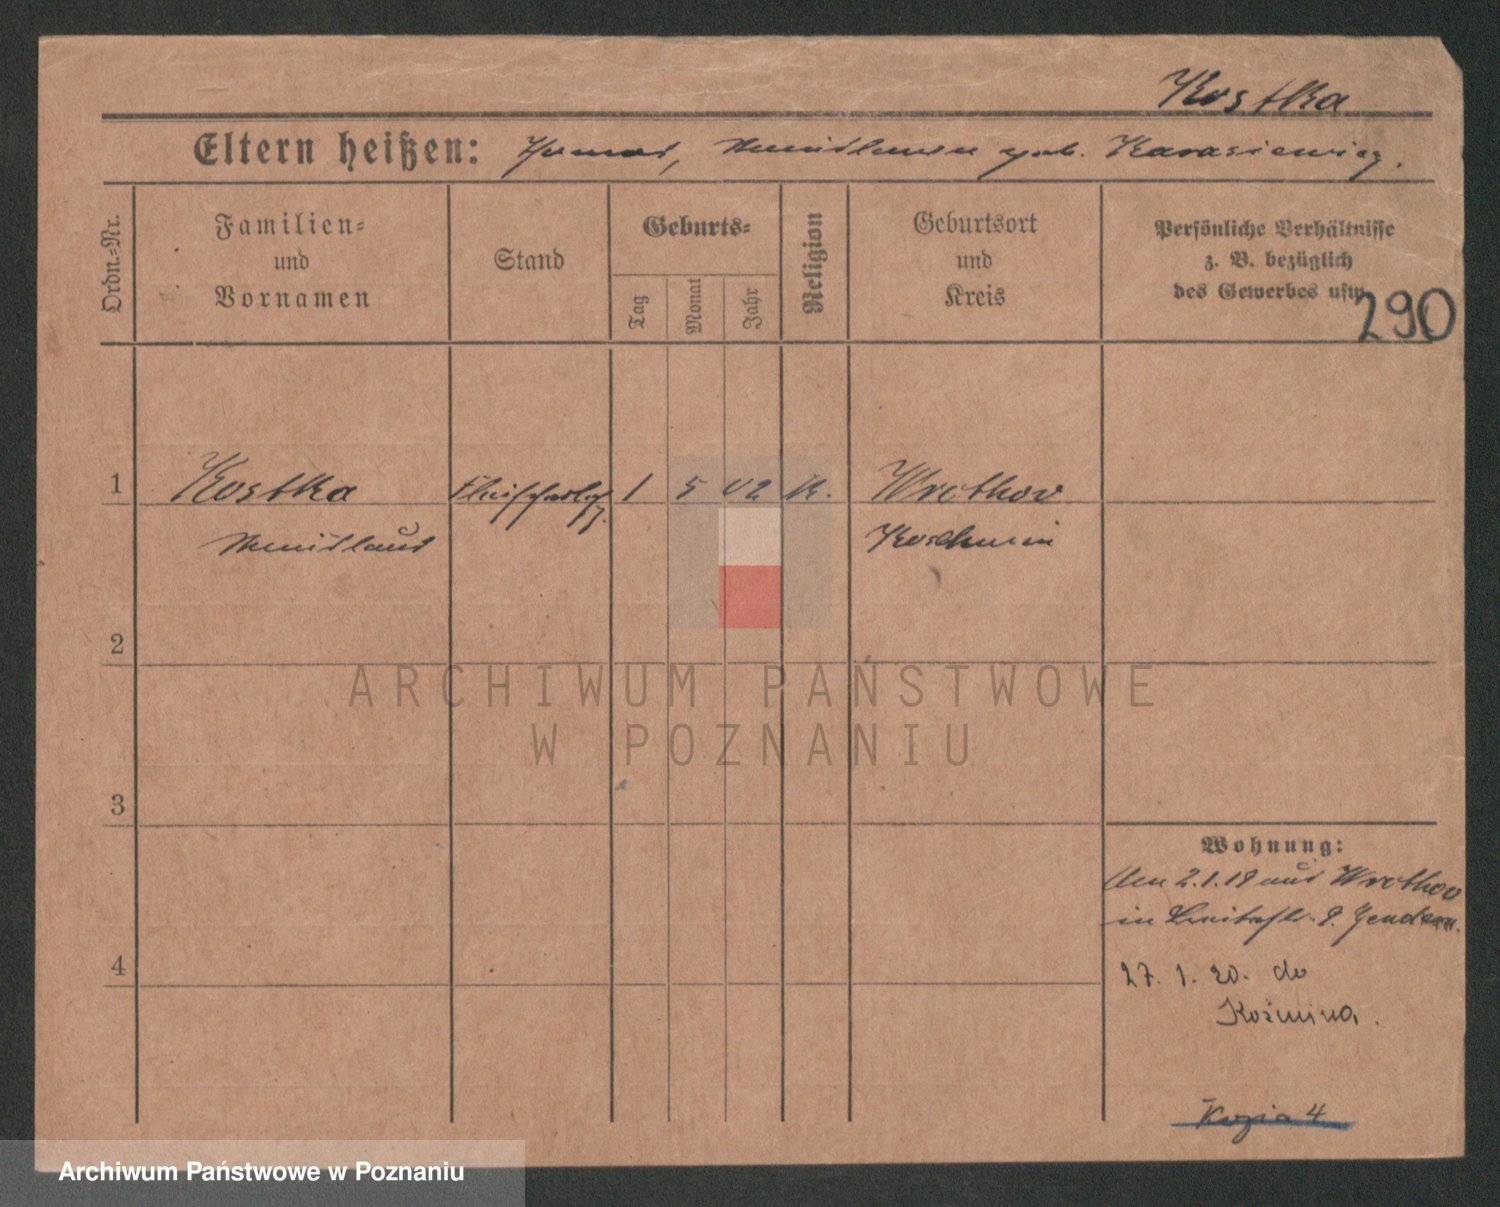 Kostka
Eltern heißen: Thomas, geb. Karasiewicz.
Ordn.=Nr.
Familien=
und
Vornamen
Stand
Geburts=
Tag
Monat
Jahr
Religion
Geburtsort
und
Kreis
Persönliche Verhältnisse
z. B. bezüglich
des Gewerbes usw.
290
1 Kostka 1 5 02 K. Wrotkow
Koschmin
2
ARCHIWUM PAŃSTWOWE
W POZNANIU
3
Wohnung:
Am 2.1.19 aus Wrotkow
in
4
27. 1. 20. do
Koźmina.
Kozia 4
Archiwum Państwowe w Poznaniu